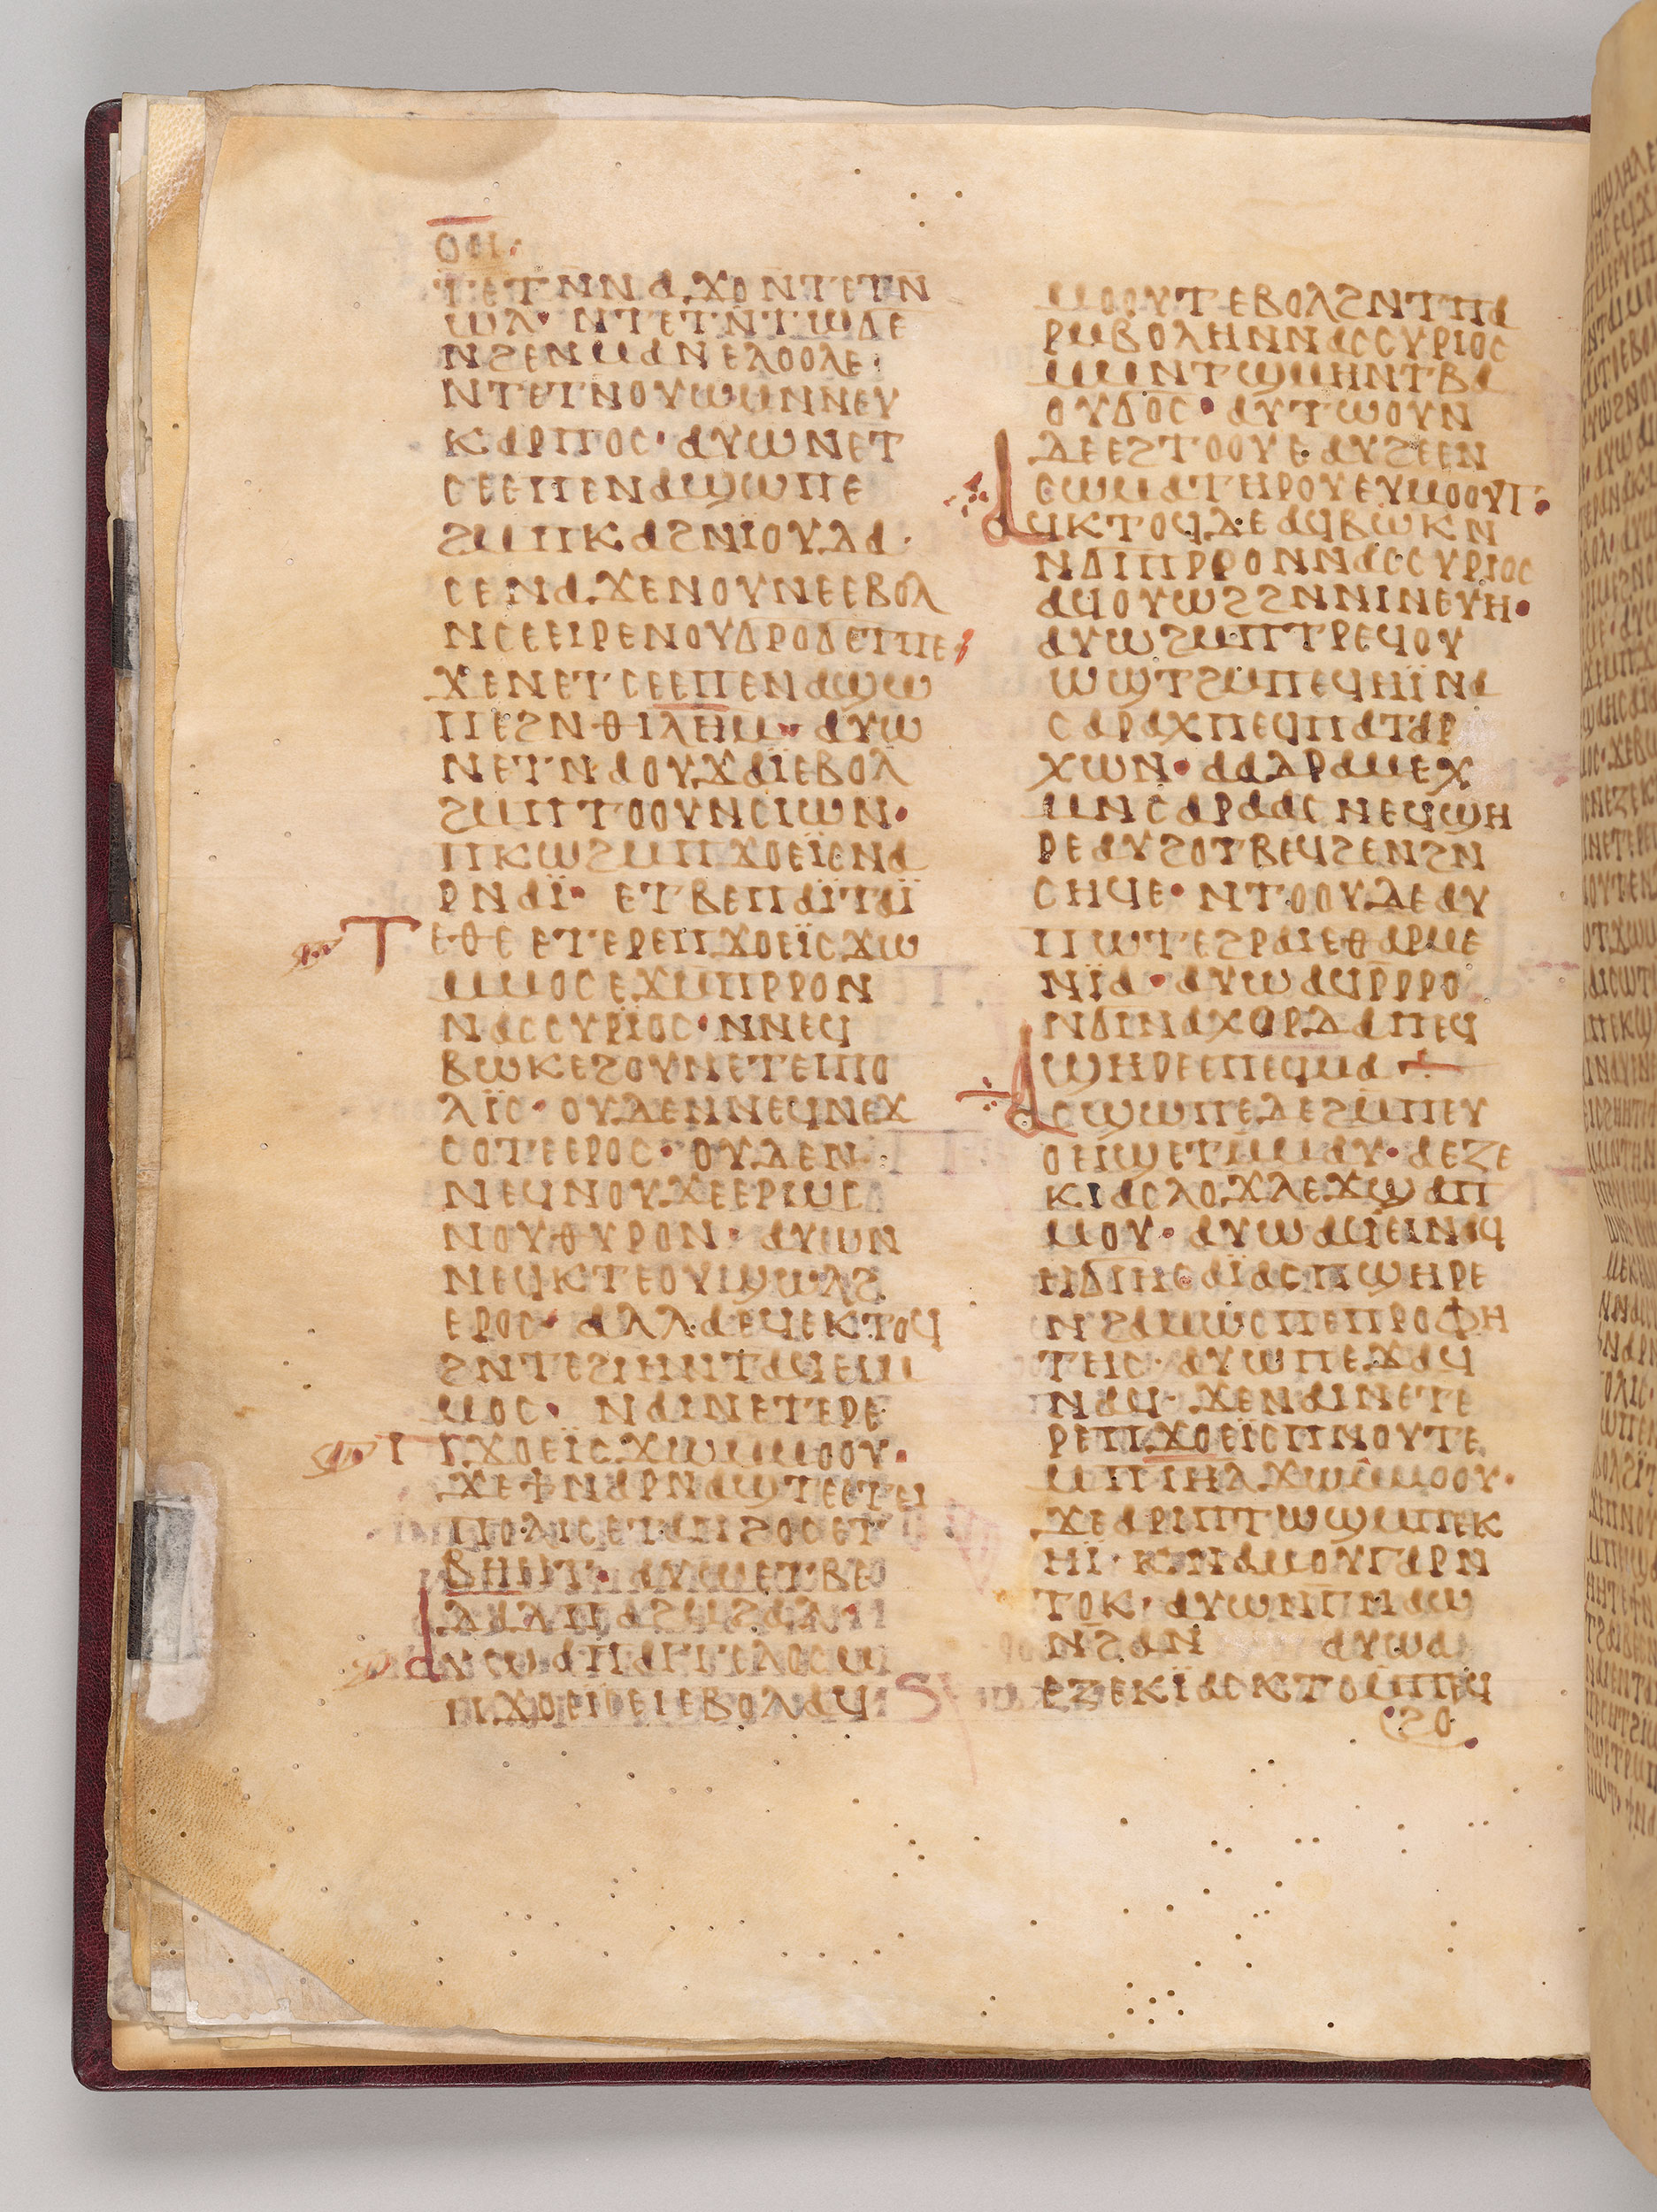 ⲟⲉⲓ·
ⲧⲉⲧⲛⲛⲁϫⲟⲛⲧⲉⲧⲛ
ⲱⲗ· ⲛⲧⲉⲧⲛⲧⲱϭⲉ
ⲛϩⲉⲛⲙⲁⲛⲉⲗⲟⲟⲗⲉ·
ⲛⲧⲉⲧⲛⲟⲩⲱⲙⲛⲛⲉⲩ
ⲕⲁⲣⲡⲟⲥ· ⲁⲩⲱⲛⲉⲧ
ⲥⲉⲉⲡⲉⲛⲁϣⲱⲡⲉ
ϩⲙⲡⲕⲁϩⲛⲓⲟⲩⲇⲁ·
ⲥⲉⲛⲁϫⲉⲛⲟⲩⲛⲉⲉⲃⲟⲗ
ⲛⲥⲉⲉⲓⲣⲉⲛⲟⲩϭⲣⲟϭⲉⲧⲡⲉ
ϫⲉⲛⲉⲧⲥⲉⲉⲡⲉⲛⲁϣⲱ
ⲡⲉϩⲛⲑⲓⲗⲏⲙ· ⲁⲩⲱ
ⲛⲉⲧⲛⲁⲟⲩϫⲁⲓ̈ⲉⲃⲟⲗ
ϩⲙⲡⲧⲟⲟⲩⲛⲥⲓⲱⲛ·
ⲡⲕⲱϩⲙⲡϫⲟⲉⲓ̈ⲥⲛⲁ
ⲣⲛⲁⲓ̈· ⲉⲧⲃⲉⲡⲁⲓ̈ⲧⲁⲓ̈
ⲧⲉⲑⲉⲉⲧⲉⲣⲉⲡϫⲟⲉⲓ̈ⲥϫⲱ
ⲙⲙⲟⲥⲉϫⲙⲡⲣⲣⲟⲛ
ⲛⲁⲥⲥⲩⲣⲓ̈ⲟⲥ·ⲛⲛⲉϥ
ⲃⲱⲕⲉϩⲟⲩⲛⲉⲧⲉⲓⲡⲟ
ⲗⲓ̈ⲥ· ⲟⲩⲇⲉⲛⲛⲉϥⲛⲉϫ
ⲥⲟⲧⲉⲉⲣⲟⲥ· ⲟⲩⲇⲉⲛ
ⲛⲉϥⲛⲟⲩϫⲉⲉⲣⲱⲥ
ⲛⲟⲩⲑⲩⲣⲟⲛ· ⲁⲩⲱⲛ
ⲛⲉϥⲕⲧⲉⲟⲩϣⲱⲗϩ
ⲉⲣⲟⲥ· ⲁⲗⲗⲁⲉϥⲉⲕⲧⲟϥ
ϩⲛⲧⲉϩⲓⲏⲛⲧⲁϥⲉⲓⲙ
ⲙⲟⲥ· ⲛⲁⲓⲛⲉⲧⲉⲣⲉ
ⲡϫⲟⲉⲓ̈ⲥϫⲱⲙⲙⲟⲟⲩ·
ϫⲉϯⲛⲁⲣⲛⲁϣⲧⲉⲉⲧⲉⲓ
ⲡⲟⲗⲓⲥⲉⲧⲁⲛϩⲟⲥⲉⲧ
ⲃⲏⲏⲧ· ⲁⲩⲱⲉⲧⲃⲉ
ⲇⲁⲇⲡⲁϩⲙϩⲁⲗ·
ⲁⲛⲥⲱⲁⲡⲁⲅⲅⲉⲗⲟⲥⲙ
ⲡϫⲟⲉⲓⲥⲉⲓⲉⲃⲟⲗⲁϥ
ⲙⲟⲟⲩⲧⲉⲃⲟⲗϩⲛⲧⲡⲁ
ⲣⲙⲃⲟⲗⲏⲛⲛⲁⲥⲥⲩⲣⲓⲟⲥ
ⲙⲙⲛⲧϣⲙⲏⲛⲧⲃⲁ
ⲟⲩϭⲟⲥ· ⲁⲩⲧⲱⲟⲩⲛ
ⲇⲉⲉϩⲧⲟⲟⲩⲉⲁⲩϩⲉⲉⲛ
ⲥⲱⲙⲁⲧⲏⲣⲟⲩⲉⲩⲙⲟⲟⲩⲧ·
ⲁϥⲕⲧⲟϥⲇⲉⲁϥⲃⲱⲕⲛ
ⲛϭⲓⲡⲣⲣⲟⲛⲛⲁⲥⲥⲩⲣⲓⲟⲥ
ⲁϥⲟⲩⲱϩϩⲛⲛⲓⲛⲉⲩⲏ·
ⲁⲩⲱϩⲙⲡⲧⲣⲉϥⲟⲩ
ⲱϣⲧϩⲙⲡⲉϥⲏⲓ̈ⲛⲁ
ⲥⲁⲣⲁⲭⲡⲉϥⲡⲁⲧⲁⲣ
ⲭⲱⲛ· ⲁⲇⲣⲁⲙⲉⲭ
ⲙⲛⲥⲁⲣⲁⲁⲥⲛⲉϥϣⲏ
ⲣⲉⲁⲩϩⲟⲧⲃⲉϥϩⲉⲛϩⲛ
ⲥⲏϥⲉ· ⲛⲧⲟⲟⲩⲇⲉⲁⲩ
ⲡⲱⲧⲉϩⲣⲁⲓⲉⲑⲁⲣⲙⲉ
ⲛⲓ̈ⲁ· ⲁⲩⲱⲁϥⲣⲣⲣⲟ
ⲛϭⲓⲛⲁⲭⲟⲣⲇⲁⲡⲉϥ
ϣⲏⲣⲉⲉⲡⲉϥⲙⲁ
ⲁⲥϣⲱⲡⲉⲇⲉϩⲙⲡⲉⲩ
ⲟⲉⲓϣⲉⲧⲙⲙⲁⲩ· ⲁⲉⲍⲉ
ⲕⲓⲁⲥⲗⲟϫⲗⲉϫϣⲁⲡ
ⲙⲟⲩ· ⲁⲩⲱⲁϥⲉⲓⲛⲁϥ
ⲛϭⲓⲏⲥⲁⲓ̈ⲁⲥⲡϣⲏⲣⲉ
ⲛϩⲁⲙⲱⲥⲡⲉⲡⲣⲟⲫⲏ
ⲧⲏⲥ· ⲁⲩⲱⲡⲉϫⲁϥ
ⲛⲁϥ· ϫⲉⲛⲁⲓⲛⲉⲧⲉ
ⲣⲉⲡϫⲟⲉⲓ̈ⲥⲡⲛⲟⲩⲧⲉ
ⲙⲡⲓⲏⲗϫⲱⲙⲙⲟⲟⲩ·
ϫⲉⲁⲣⲓⲡⲧⲱϣⲙⲡⲉⲕ
ⲏⲓ̈· ⲕⲛⲁⲙⲟⲩⲅⲁⲣⲛ
ⲧⲟⲕ· ⲁⲩⲱⲛⲅⲛⲁⲱ
ⲛϩⲁⲛ ⲁⲩⲱⲁ
ⲉⲍⲉⲕⲓ̈ⲁⲥⲕⲧⲟⲙⲡⲉϥ
ϩⲟ